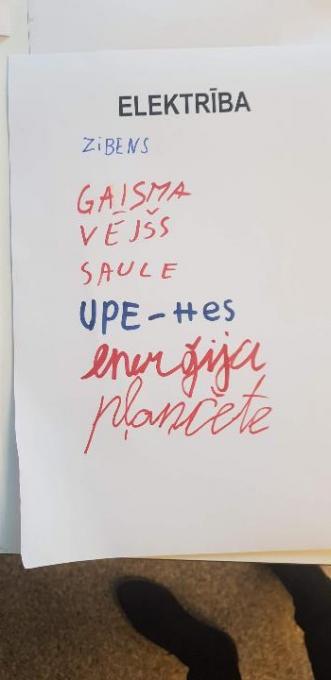 ELEKTRĪBA
ZiBENS
GAISMA
VĒJŠS
SAULE
UPE-HES
enerģija
pļančete